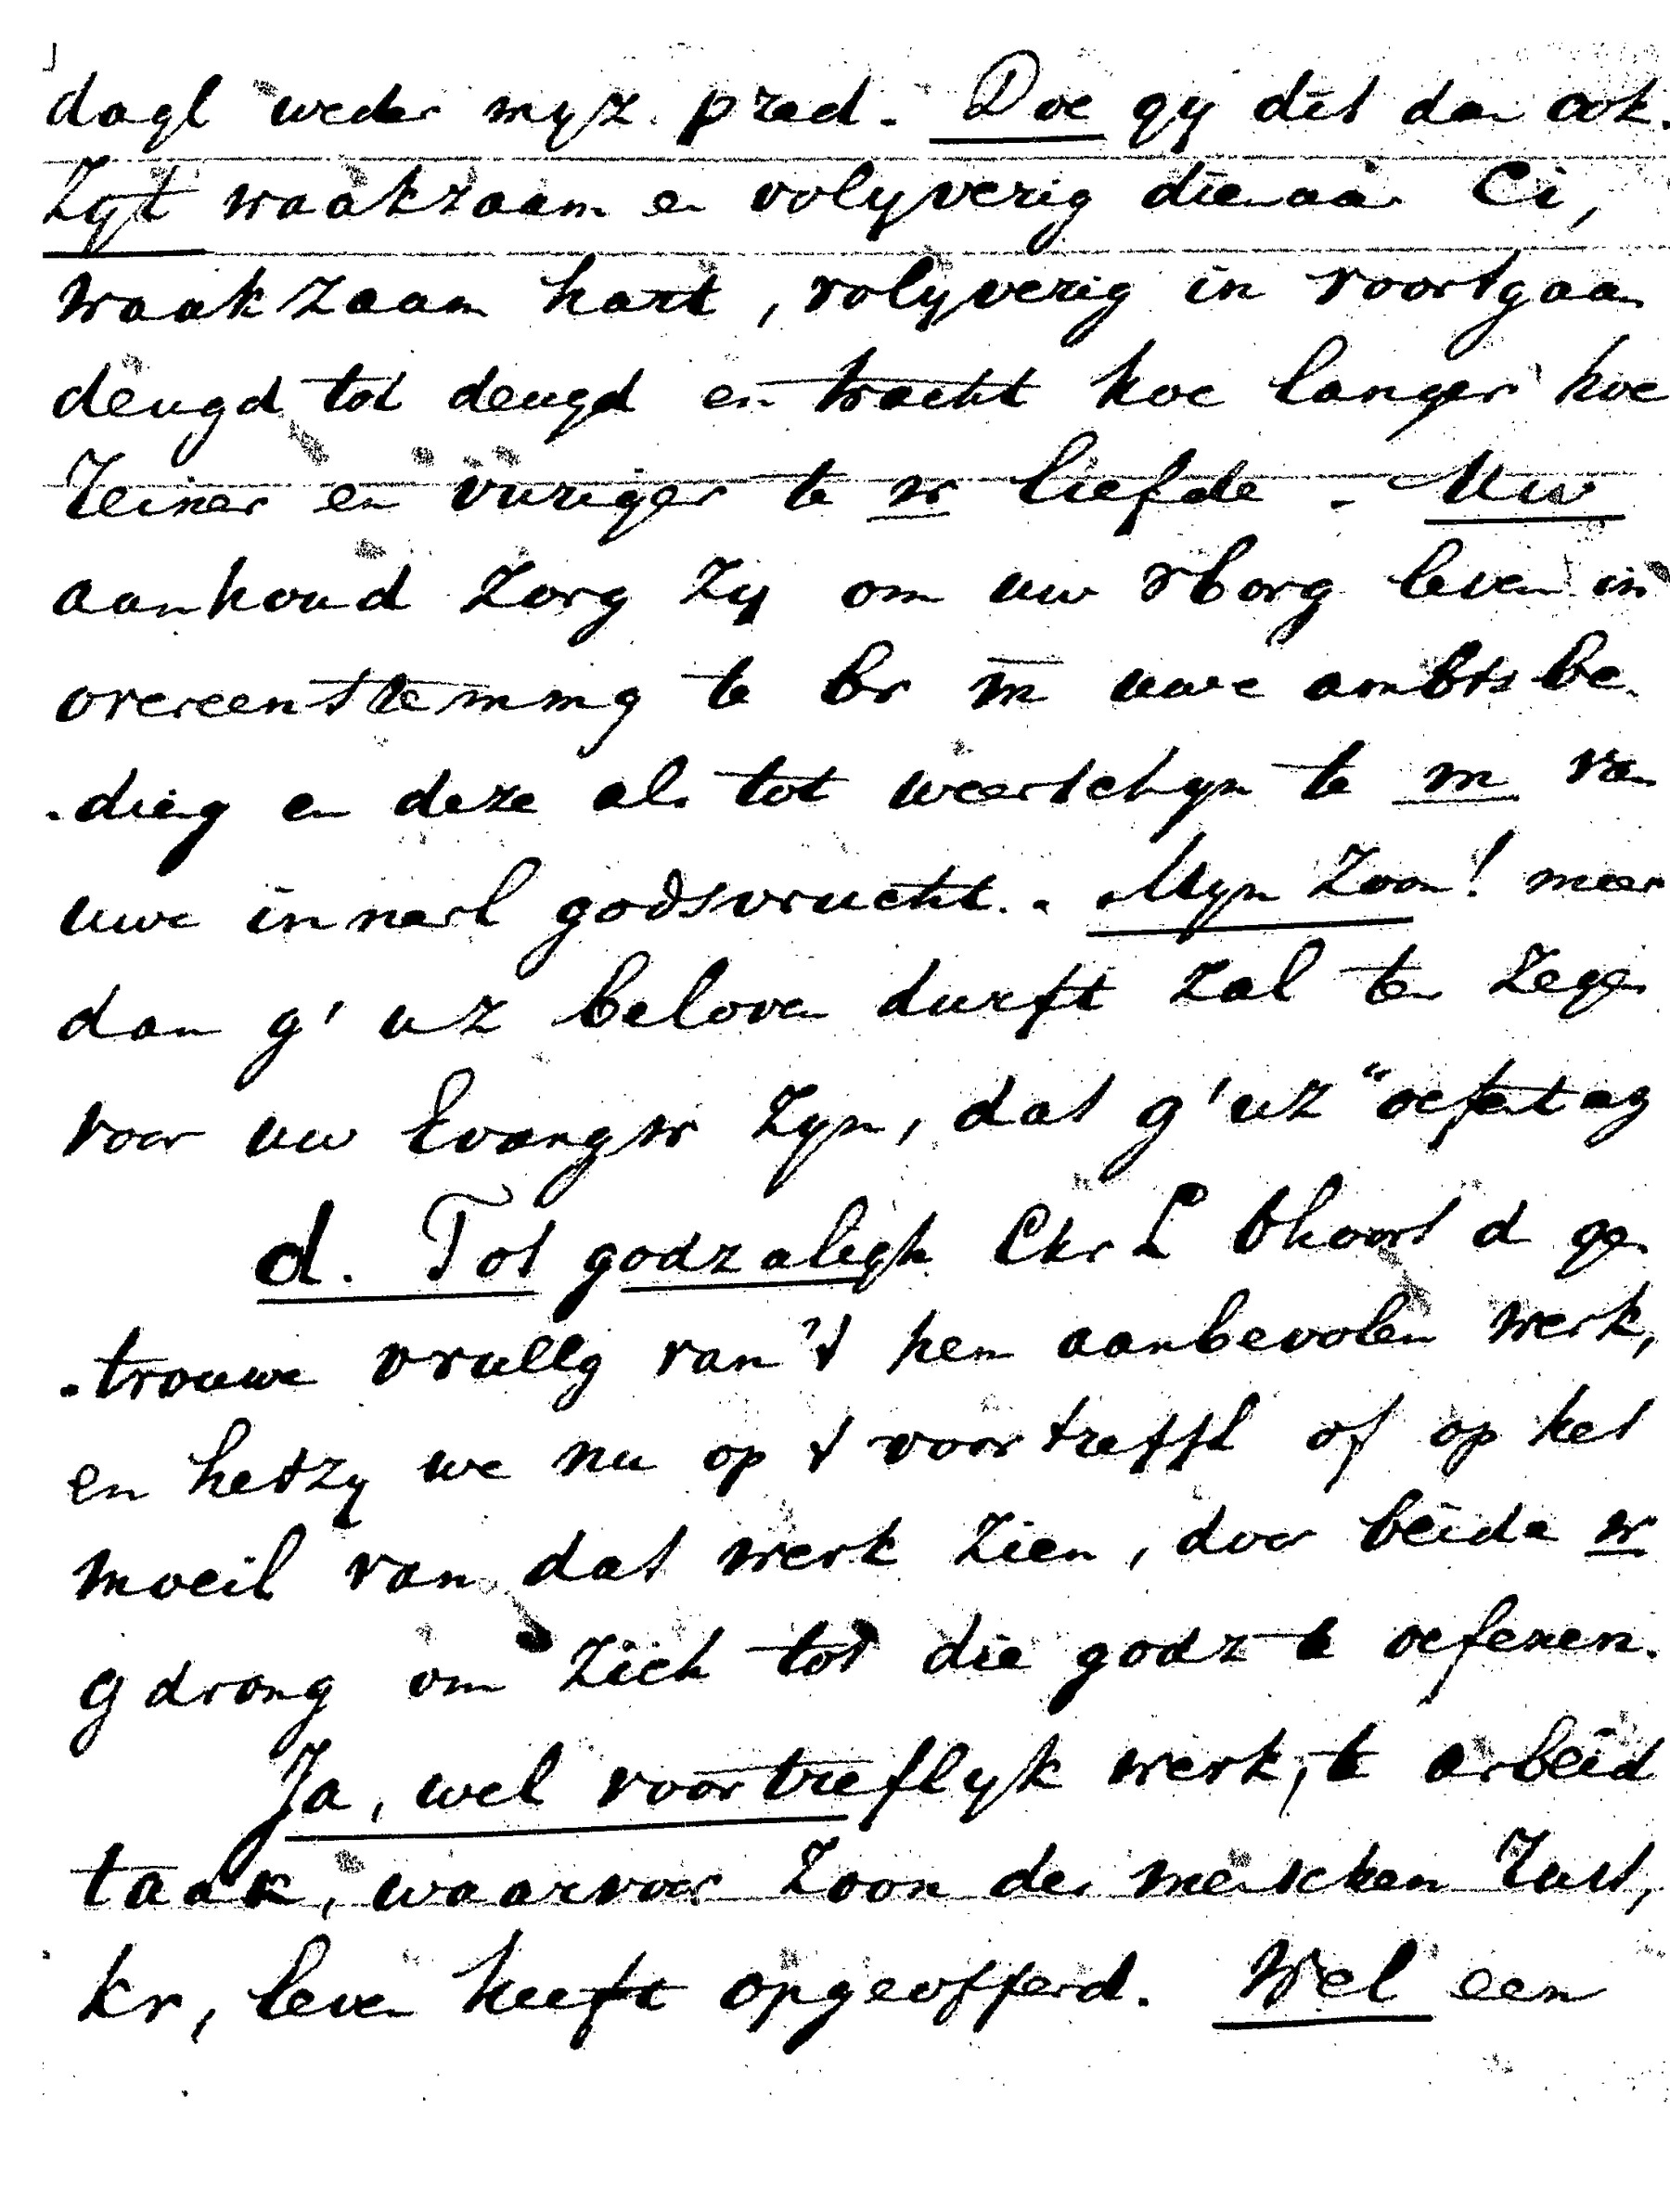 dagl weder myz. pred. Doe gy dit dan ook.
Zyt waakzaam en volyverig dienaar Ci,
waakzaam hart, volyverig in voortgaan
deugd tot deugd en tracht hoe langer hoe
reiner en vuriger te w liefde - Uw
aanhoud zorg zy om uw vborg leven in
overeenstemmg te br m uwe ambtsbe-
-dieng en deze als tot weerschyn te m van
uwe innerl godsvrucht. - Myn Zoon! meer
dan g' uz beloven durft zal ten zegen
voor uw Evangw zyn, dat g' uz oefent
d. Tot godzaligh Chr L bhoort d ge-
-trouwe vvullg van 't hem aanbevolen werk,
en hetzy we nu op 't voortreffl of op het
moeil van dat werk zien, door beide w
gdrong om zich tot die godz te oefenen.
Ja, wel voortreflyk werk, te arbeid
taak, waarvoor Zoon des menschen rust,
kr, leven heeft opgeofferd. Wel een